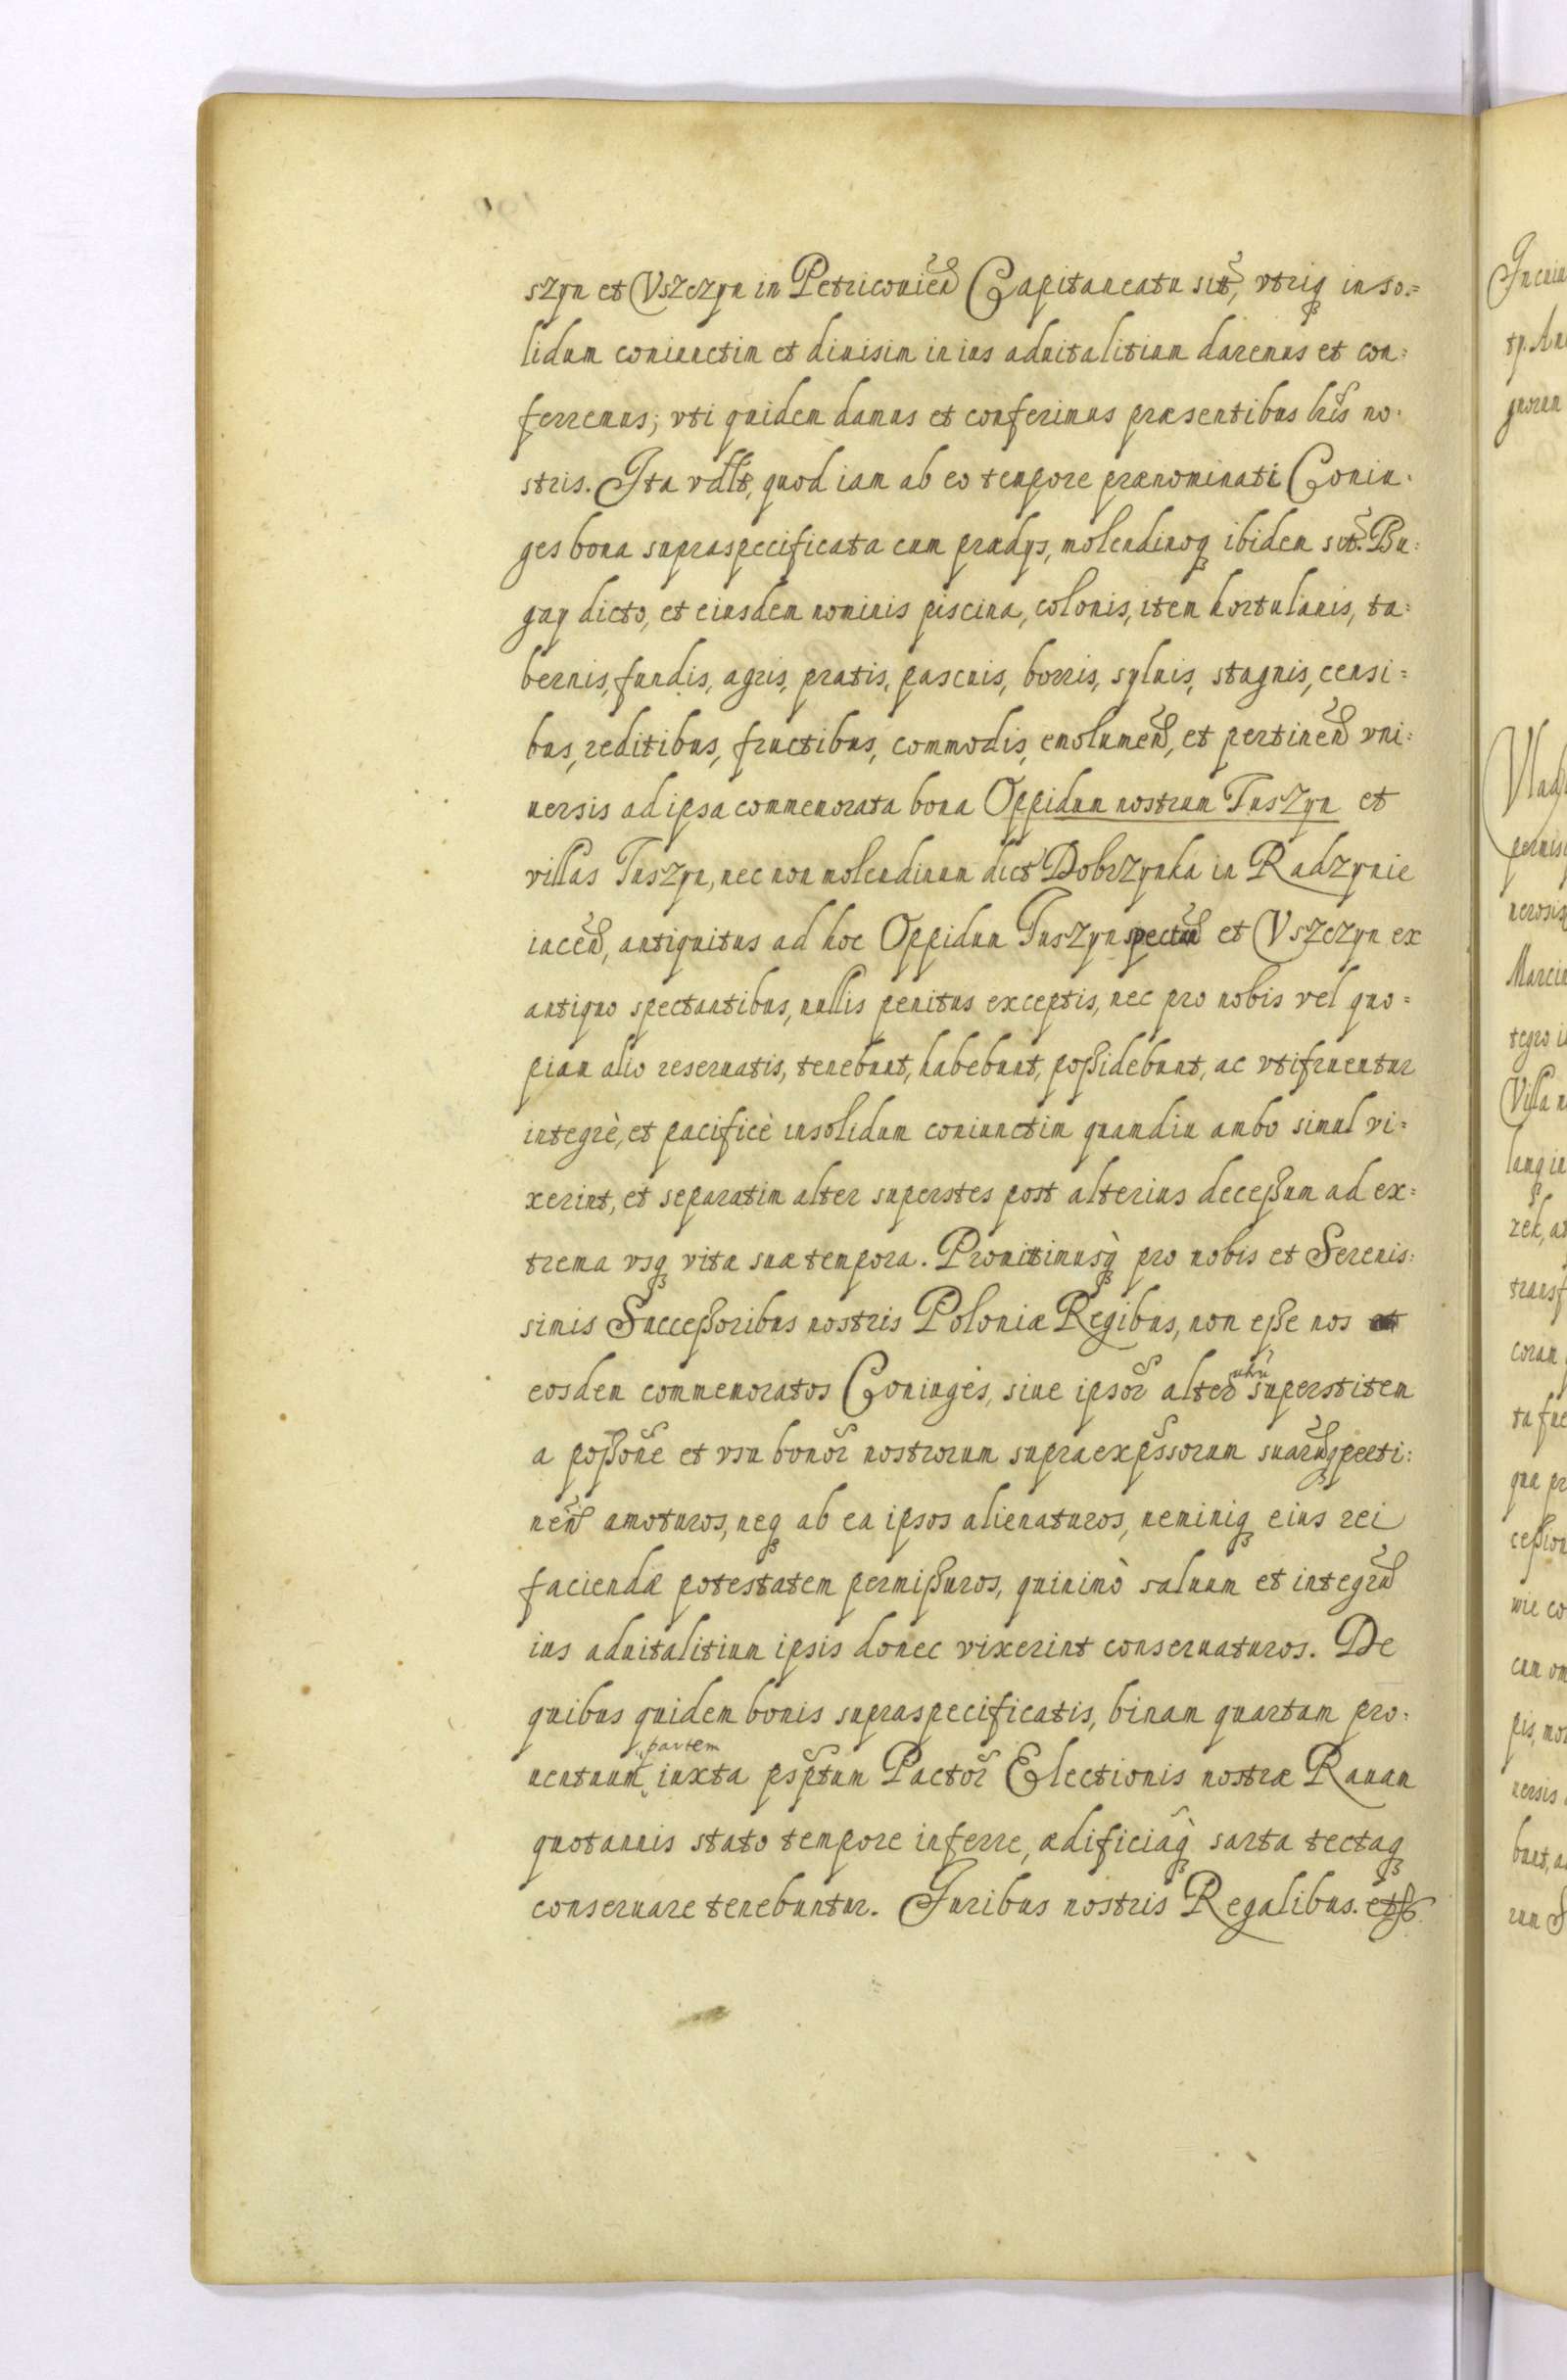 szyn et Vszczyn in Petriconien̄ Capitaneatu sit̃, vtriq in so:=
lidum coniunctim et diuisim in ius aduitalitium daremus et con:
ferremus; vti quidem damus et conferimus præsentibus lr̃is no:
stris. Ita vdlt, quod iam ab eo tempore prænominati Coniu:
ges bona supraspecificata cum prædys, molendinoq ibidem sit̃. Bu:
gay dicto, et eiusdem nominis piscina, colonis, item hortulanis, ta:
bernis, fundis, agris, pratis, pascuis, borris, syluis, stagnis, censi=
bus, reditibus, fructibus, commodis, emolumen̄, et pertinen̄ vni:
uersis ad ipsa commemorata bona Oppidum nostrum Tuszyn et
villas Tuszyn, nec non molendinum dict Dobrzynka in Radzynie
iacen̄, antiquitus ad hoc Oppidum Tuszyn spectan̄ et Vszczyn ex
antiquo spectantibus, nullis penitus exceptis, nec pro nobis vel quo=
piam alio reseruatis, tenebunt, habebunt, poßidebunt, ac vtifruentur
integrè, et pacificè insolidum coniunctim quamdiu ambo simul vi=
xerint, et separatim alter superstes post alterius deceßum ad ex=
trema vsq vitæ suæ tempora. Promittimusq̀ pro nobis et Serenis:
simis Succeßoribus nostris Poloniæ Regibus, non eße nos
eosdem commemoratos Coniuges, siue ipsor̃ alter utru superstitem
a poßon̄e et vsu bonor̃ nostrorum supraexpssorum suarũq perti:
nen̄ amoturos, neq ab ea ipsos alienaturos, neminiq eius rei
faciendæ potestatem permißuros, quinimò saluum et integrũ
ius aduitalitium ipsis donec vixerint conseruaturos. De
quibus quidem bonis supraspecificatis, binam quartam pro:
uentuum partem iuxta psptum Pactor̃ Electionis nostræ Rauam
quotannis stato tempore inferre, ædificiaq̀ sarta tectaq
conseruare tenebuntur. Juribus nostris Regalibus. etc